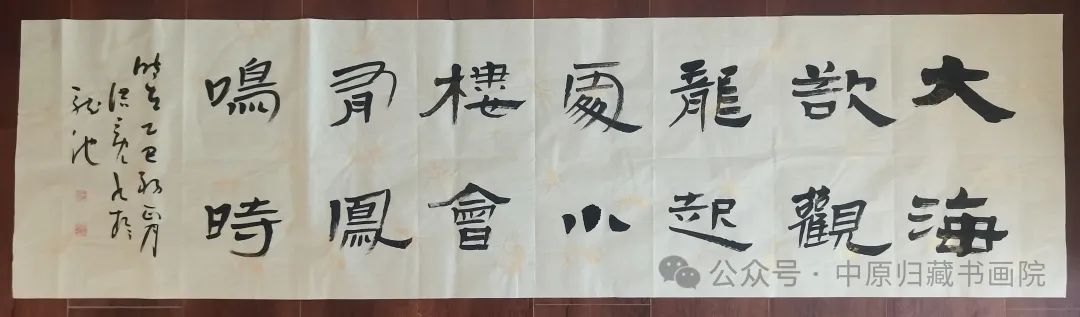 大海
欲觀
龍起
處小
樓會
有鳳
鳴時
時在乙巳
龍池
公众号·中原归藏书画院